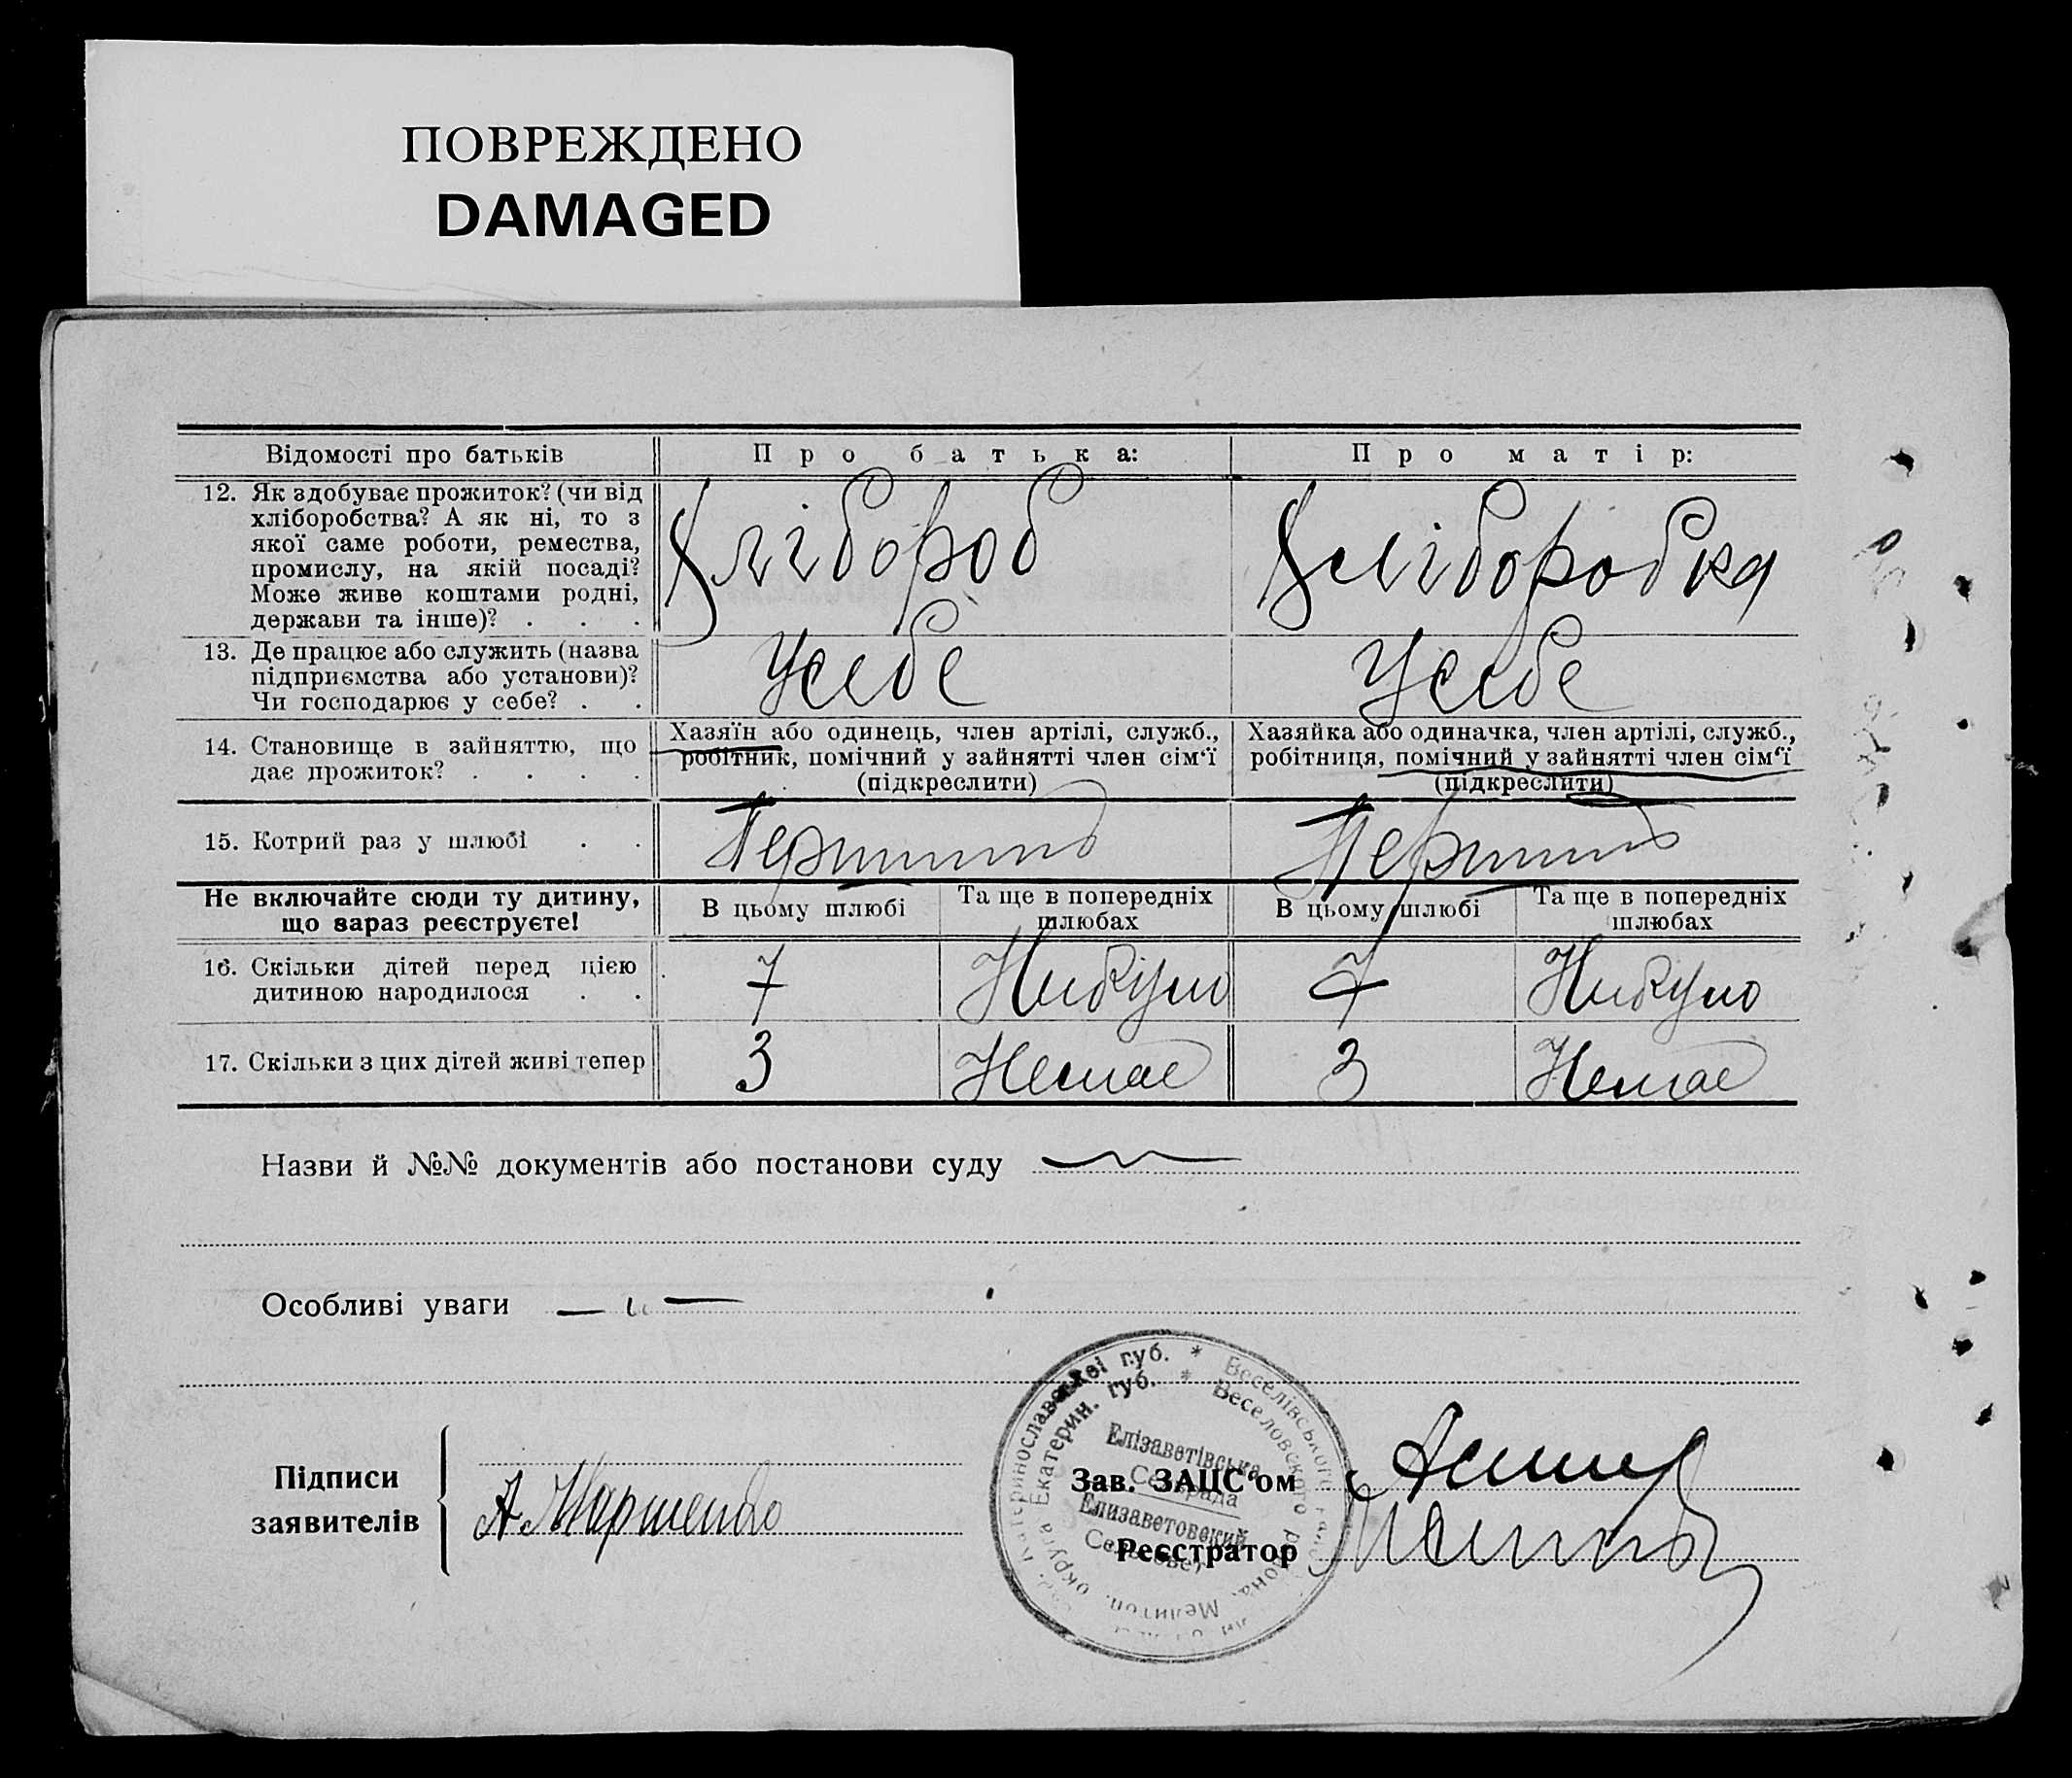 ПОВРЕЖДЕНО
DAMAGED
Відомості про батьків
Про батька:
Про матір:
12. Як здобуває прожиток? (чи від
хліборобства? А як ні, то з
якої саме роботи, ремества,
промислу, на якій посаді?
Може живе коштами родні,
держави та інше)? . . .
Хлібороб
Хліборобка
13. Де працює або служить (назва
підприємства або установи)?
Чи господарює у себе? . .
Усебе
Усебе
14. Становище в зайняттю, що
дає прожиток? . . . .
Хазяїн або одинець, член артілі, служб.,
робітник, помічний у зайнятті член сім'ї
(підкреслити)
Хазяйка або одиначка, член артілі, служб.,
робітниця, помічний у зайнятті член сім'ї
(підкреслити)
15. Котрий раз у шлюбі . .
Не включайте сюди ту дитину,
що зараз реєструєте!
В цьому шлюбі
Та ще в попередніх
шлюбах
В цьому шлюбі
Та ще в попередніх
шлюбах
16. Скільки дітей перед цією
дитиною народилося . .
7
Небуло
7
Небуло
17. Скільки з цих дітей живі тепер
3
Немає
3
Немає
Назви й №№ документів або постанови суду
Особливі уваги — „ —
Підписи
заявителів
А. Марченко
Катеринославської губ. * Веселівського
Екатерин. губ. * Веселовского района, Мелитоп. округа
Елізаветівська
Сельрада
Елизаветовский
Сельсовет
Зав. ЗАЦС'ом
Реєстратор